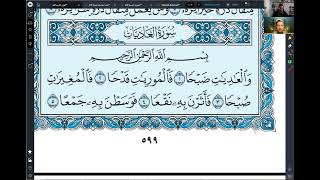 سُورَةُ الْعَادِيَاتِ
بِسْمِ اللَّهِ الرَّحْمَٰنِ الرَّحِيمِ
وَالْعَادِيَاتِ ضَبْحًا ١ فَالْمُورِيَاتِ قَدْحًا ٢ فَالْمُغِيرَاتِ
صُبْحًا ٣ فَأَثَرْنَ بِهِ نَقْعًا ٤ فَوَسَطْنَ بِهِ جَمْعًا ٥
٥٩٩